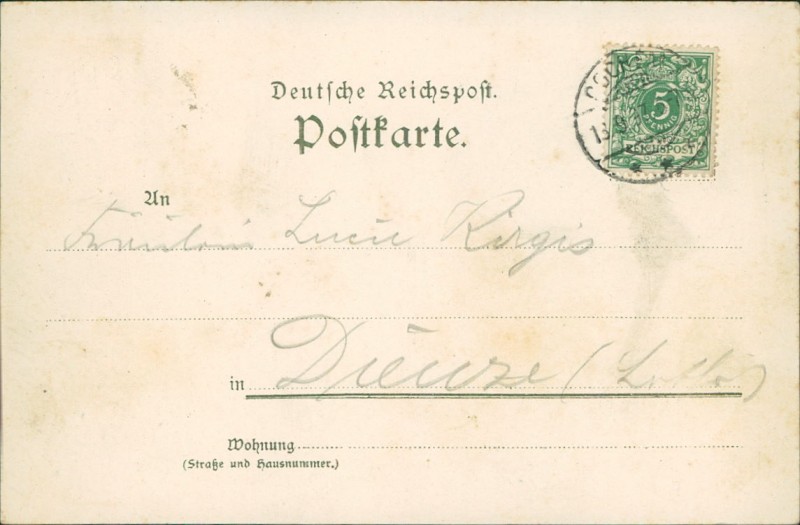 Deutsche Reichspost.
Postkarte.
5
PFENNIG
REICHSPOST
An
Fräulein Lucie Kirgis
in Dieuze
Wohnung
(Straße und Hausnummer.)